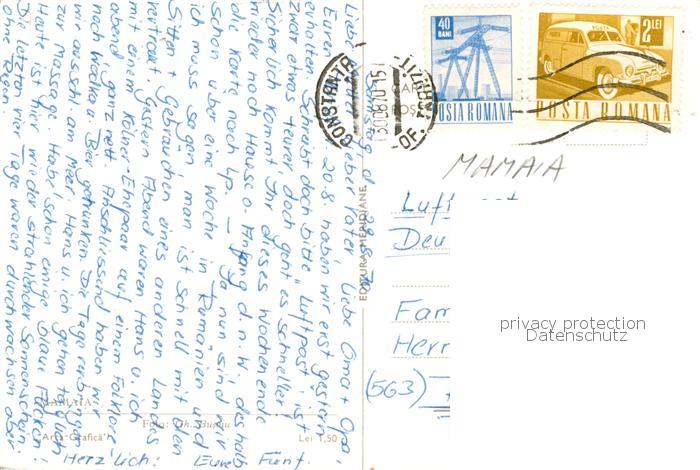 40
BANI
POSTA ROMANA
2 LEI
POSTA ROMANA
CONSTANTA
30.08.70-15
MAMAIA
Luftpost
Deu
Fam
Herr
(563)
privacy protection
Datenschutz
EDITURA MERIDIANE
MAMAIA
Foto: Gh.
"Arta Grafică"
Lei 1,50
d. 29.8.70
Liebe Mutter, lieber Vater, liebe Oma + Opa,
Euren 20.8. haben wir erst gestern
erhalten. Schreibt doch bitte Luftpost, ist
zwar etwas teurer doch geht es schneller.
Sicherlich kommt Ihr dieses Wochenende
wieder nach Hause o. Anfang d. n. W. deshalb
die Karte nach Lp. Ja nun sind wir
schon über eine Woche in Rumänien und
ich muss sagen man ist schnell mit den
Sitten + Gebräuchen eines anderen Landes
vertraut. Gestern Abend waren Hans u. ich
mit einem Kölner-Ehepaar auf einem Folklore
abend, ganz nett. Anschliessend haben wir
noch Wodka u. Bier getrunken. Die Tage verbringen
wir ausschl. am Meer, Hans u. ich gehen täglich
zur Massage. Habe schon einige blaue Flecken!
Heute ist hier wieder strahlender Sonnenschein.
Die letzten vier Tage waren durchwachsen aber
ohne Regen.
Herzlich: Eure Fünf.